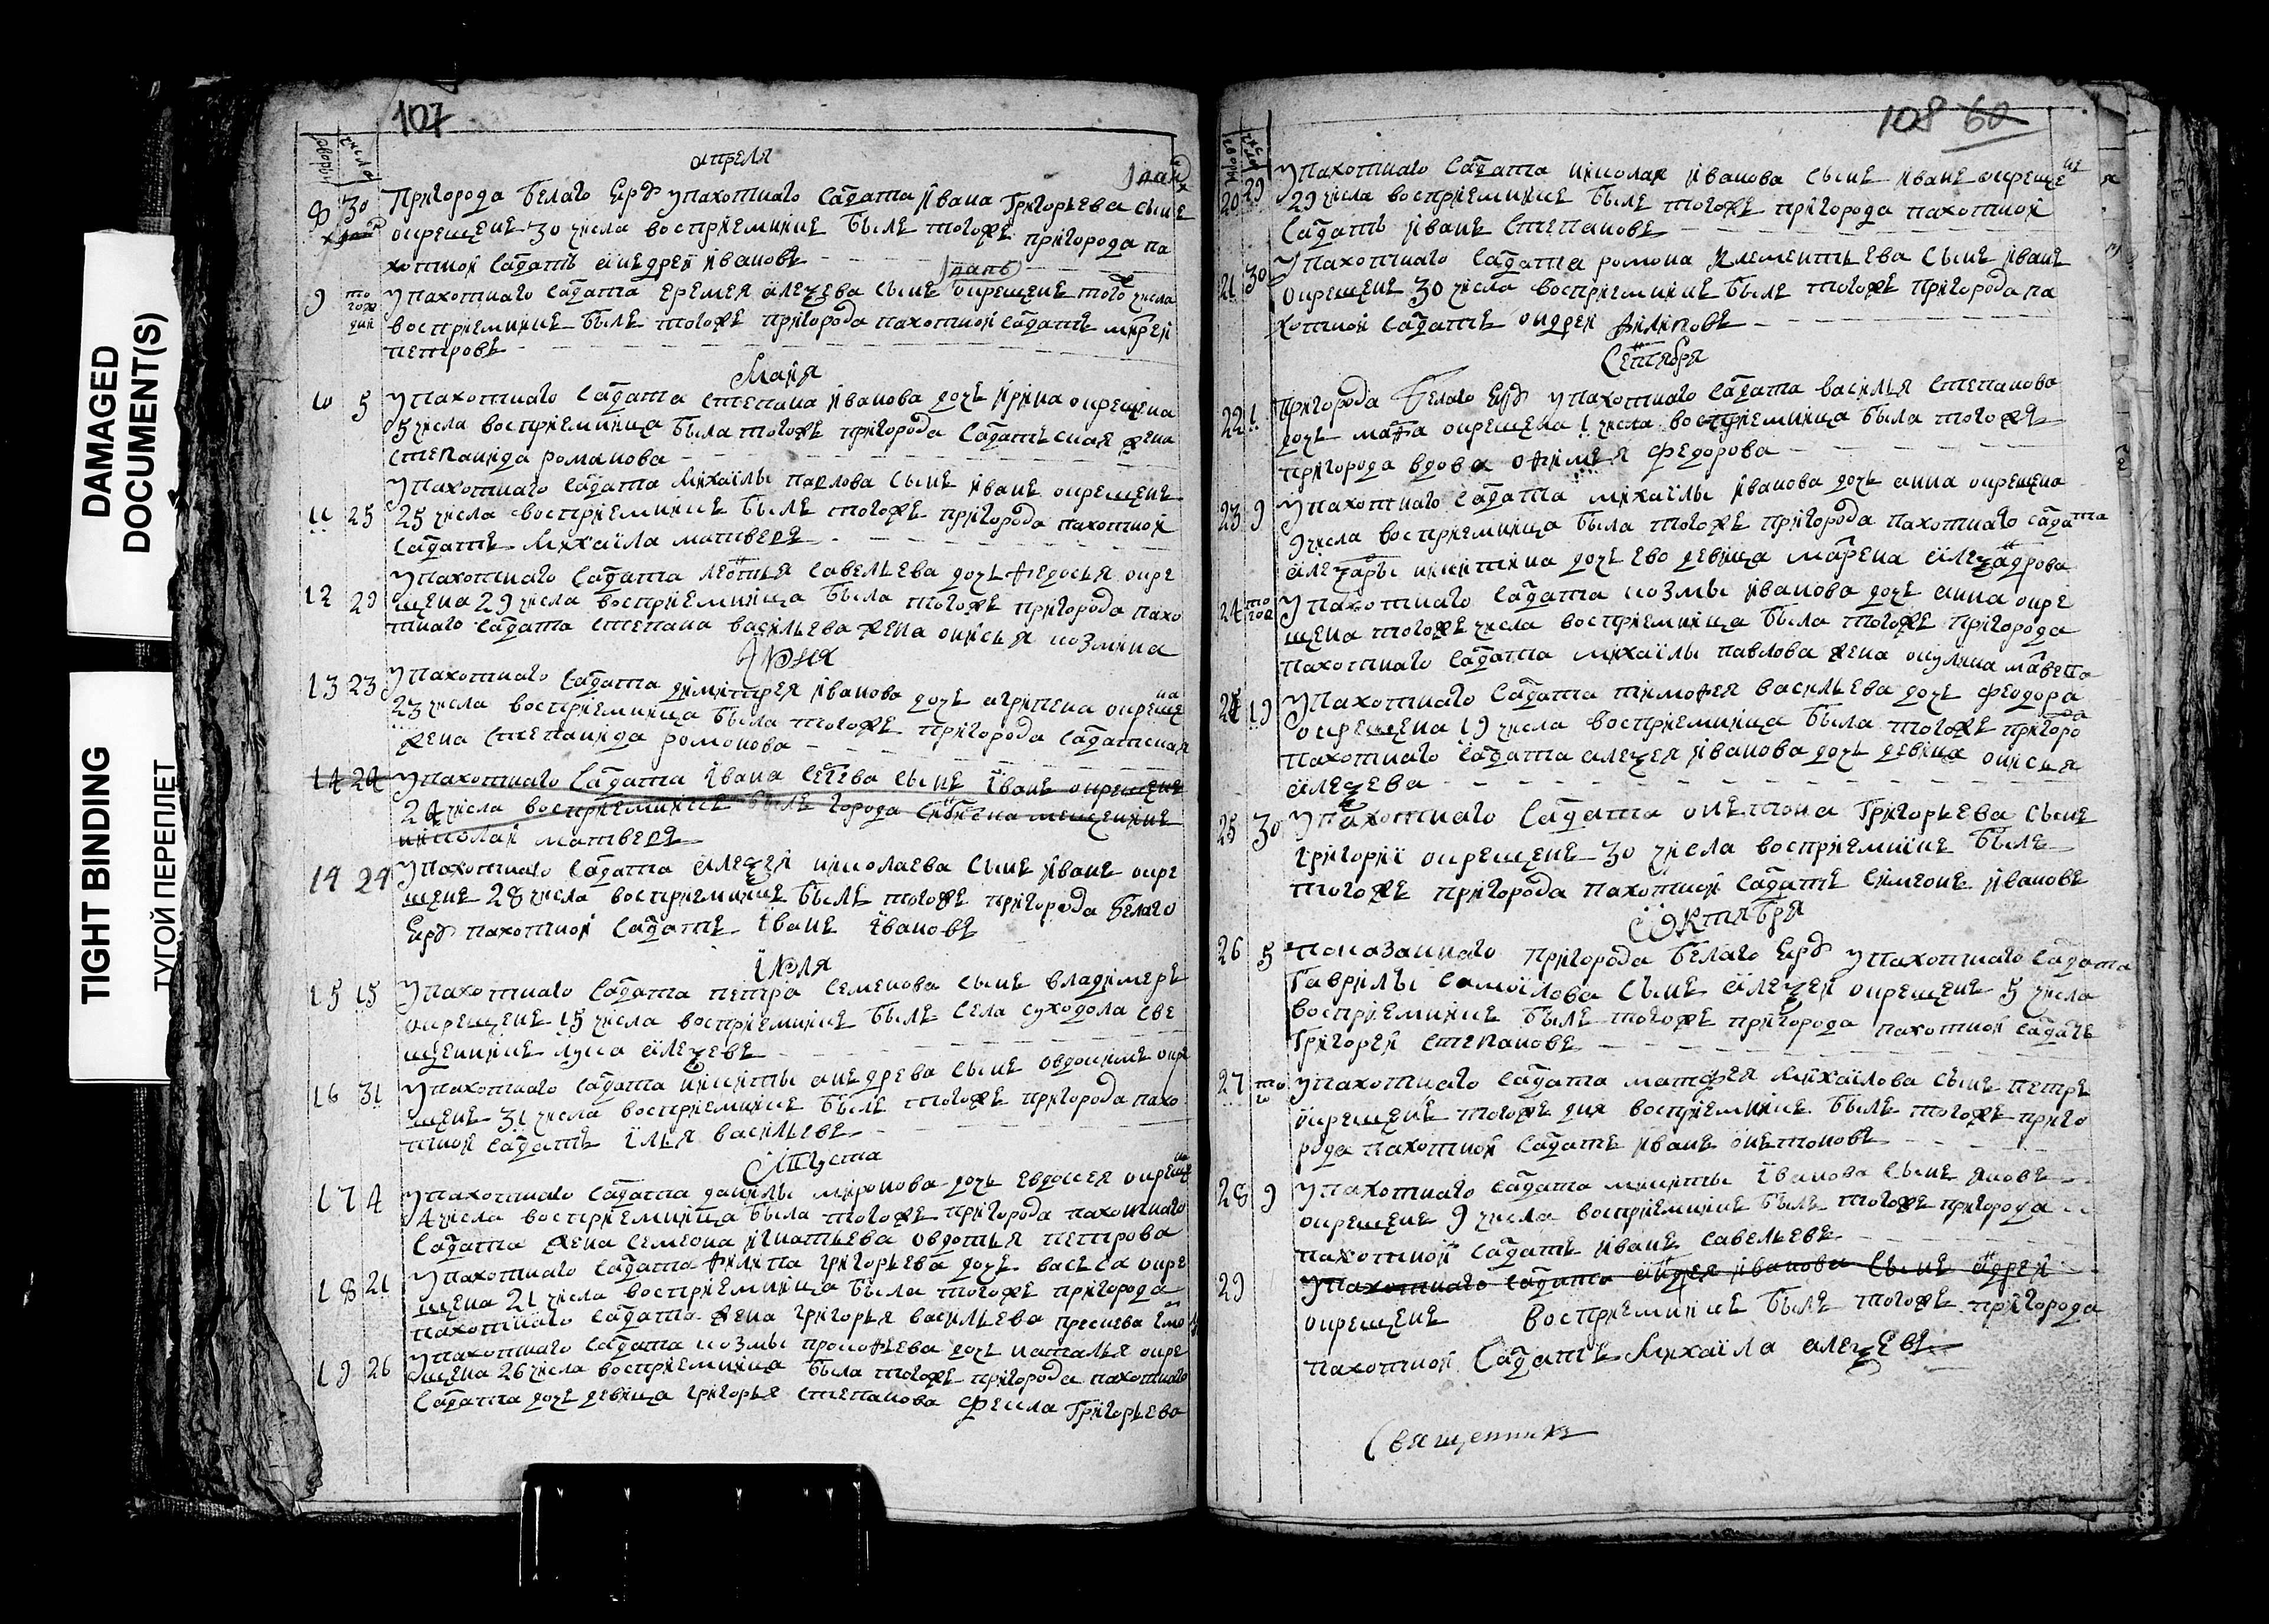 DAMAGED
DOCUMENT(S)
TIGHT BINDING
ТУГОЙ ПЕРЕПЛЕТ
107
числа
апреля
8 30 Пригорода Белаго Ерд упахотнаго салдата ивана Григорьева сынъ
окрещенъ 30 числа восприемникъ былъ тогожъ пригорода па
хотной салдатъ анъдрей ивановъ
9 то гожъ дни упахотнаго салдата еремея алеѯева сынъ окрещенъ того числа
восприемникъ былъ тогожъ пригорода пахотной салдатъ
петровъ
Маия
10 5 упахотнаго салдата степана иванова дочь ирина окрещена
5 числа восприемница была тогожъ пригорода салдатьская жена
степанида романова
упахотнаго салдата михаилы павлова сынъ иванъ окрещенъ
11 25 25 числа восприемникъ былъ тогожъ пригорода пахотной
салдатъ михаила матвеевъ
упахотнаго салдата леонтья савельева дочь ѳедосья окре
12 29 щена 29 числа восприемница была тогожъ пригорода пахо
тнаго салдата степана васильева жена онисья козмина
Июня
13 23 упахотнаго салдата димитрея иванова дочь агрипена окреще на
23 числа восприемница была тогожъ пригорода салдатская
жена степанида ромонова
14 24 упахотнаго салдата ивана сегева сынъ иванъ окрещенъ
24 числа восприемникъ былъ города
николай матвеевъ
14 24 упахотнаго салдата алеѯея николаева сынъ иванъ окре
щенъ 28 числа восприемникъ былъ тогожъ пригорода белаго
Ерд пахотной салдатъ иванъ ивановъ
Июля
15 15 упахотнаго салдата петра семенова сынъ владимеръ
окрещенъ 15 числа восприемникъ былъ села суходола све
щенникъ лука алеѯевъ
16 31 упахотнаго салдата никиты анъдрева сынъ овдокимъ окре
щенъ 31 числа восприемникъ былъ тогожъ пригорода пахо
тной салдатъ илья васильевъ
Августа
17 4 упахотнаго салдата данилы миронова дочь евдокея окреще на
4 числа восприемница была тогожъ пригорода пахотнаго
салдата жена семеона игнатьева овдотья петрова
18 21 упахотнаго салдата ѳилипа григорьева дочь васьса окре
щена 21 числа восприемница была тогожъ пригорода
пахотнаго салдата жена григорья васильева
19 26 упахотнаго салдата козмы прокоѳьева дочь наталья окре
щена 26 числа восприемница была тогожъ пригорода пахотнаго
салдата дочь девица григорья степанова Фекла Григорьева
108 60
20 29 упахотнаго салдата николая иванова сынъ иванъ окреще нъ
29 числа восприемникъ былъ тогожъ пригорода пахотной
салдатъ иванъ степановъ
21 30 упахотнаго салдата ромона клементьева сынъ иванъ
окрещенъ 30 числа восприемникъ былъ тогожъ пригорода па
хотной салдатъ ондрей ѳилиповъ
Сентября
22 1 Пригорода Белаго Ерд упахотнаго салдата василья степанова
дочь окрещена 1 числа восприемница была тогожъ
пригорода вдова оѳимья федорова
23 9 упахотнаго салдата михаилы иванова дочь анна окрещена
9 числа восприемница была тогожъ пригорода пахотнаго салдата
никитина дочь ево девица алеѯандрова
24 то гож упахотнаго салдата козмы иванова дочь анна окре
щена тогожъ числа восприемница была тогожъ пригорода
пахотнаго салдата михаилы павлова жена окулина матвева
24 19 упахотнаго салдата тимоѳея васильева дочь феодора
окрещена 19 числа восприемница была тогожъ пригоро да
пахотнаго салдата алеѯея иванова дочь девица онисья
алеѯева
25 30 упахотнаго салдата онътона григорьева сынъ
григории окрещенъ 30 числа восприемникъ былъ
тогожъ пригорода пахотной салдатъ симеонъ ивановъ
Октября
26 5 показаннаго пригорода белаго Ерд упахотнаго салдата
Гаврилы самоилова сынъ алеѯей окрещенъ 5 числа
восприемникъ былъ тогожъ пригорода пахотной салдатъ
Григорей степановъ
27 то го упахотнаго салдата матфея михаилова сынъ петръ
окрещенъ тогожъ дня восприемникъ былъ тогожъ приго
рода пахотной салдатъ иванъ онътоновъ
28 9 упахотнаго салдата микиты иванова сынъ яковъ
окрещенъ 9 числа восприемникъ былъ тогожъ пригорода
пахотной салдатъ иванъ савельевъ
29 упахотнаго салдата андрея иванова сынъ андрей
окрещенъ восприемникъ былъ тогожъ пригорода
пахотной салдатъ михаила алеѯевъ
Священникъ